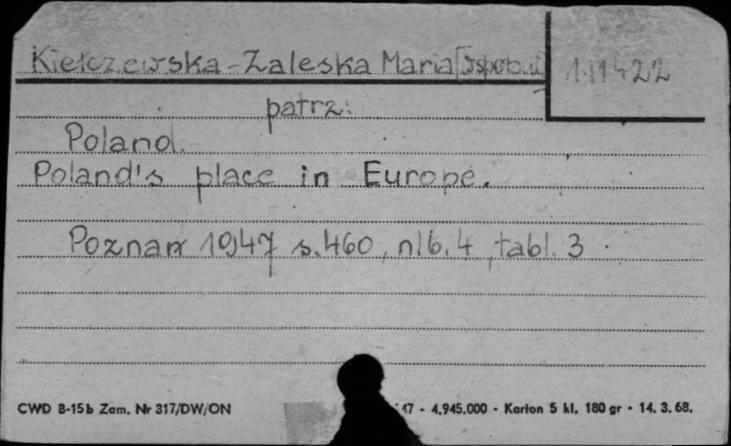 Kiełczewska-Zaleska Maria
patrz:
Poland.
Poland's place in Europe.
Poznań 1947 s.460, nlb.4, tabl. 3.
CWD B-15b Zam. Nr 317/DW/ON 47 - 4.945.000 - Karton 5 kl. 180 gr - 14. 3. 68.